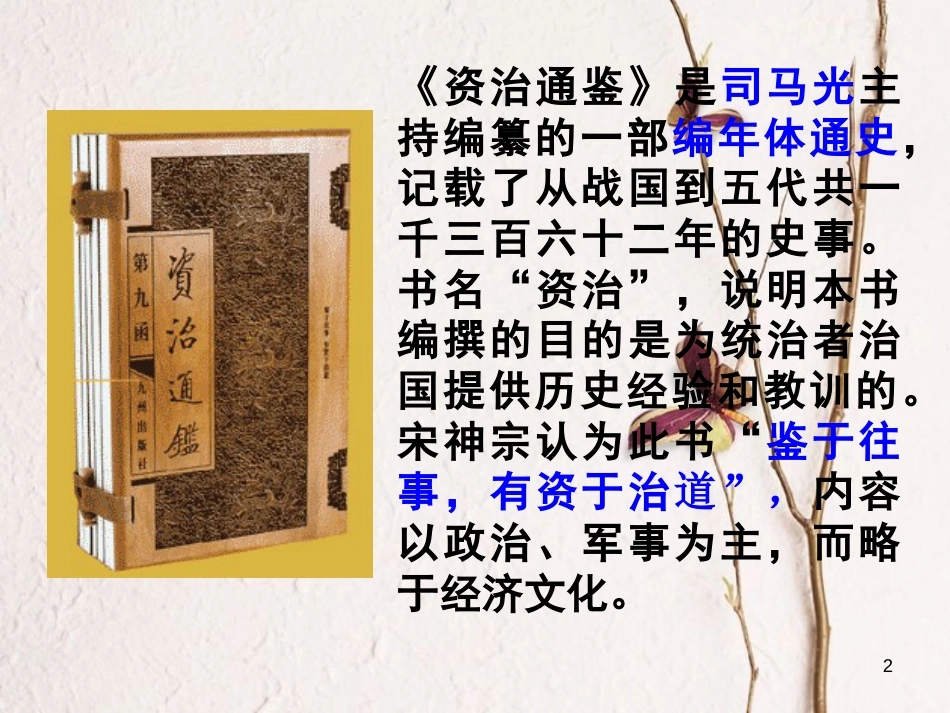 《资治通鉴》是司马光主
持编纂的一部编年体通史，
记载了从战国到五代共一
千三百六十二年的史事。
书名“资治”，说明本书
编撰的目的是为统治者治
国提供历史经验和教训的。
宋神宗认为此书“鉴于往
事，有资于治道”，内容
以政治、军事为主，而略
于经济文化。
資治通鑑
第九函
九州出版社
2